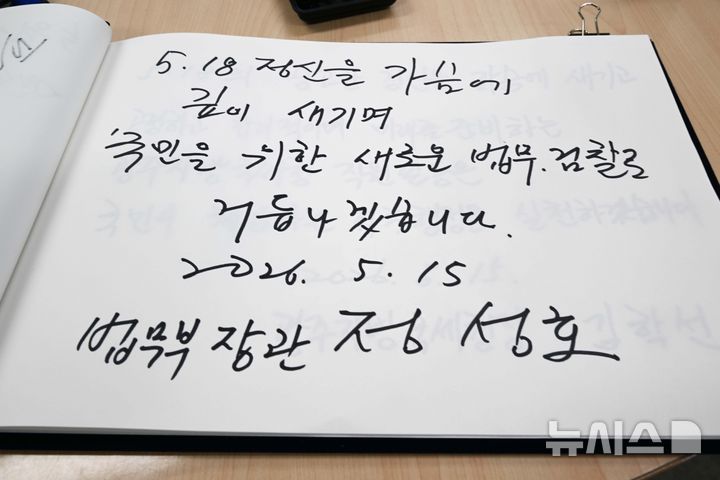 5.18 정신을 가슴에
깊이 새기며
국민을 위한 새로운 법무.검찰로
거듭나겠습니다.
2026. 5. 15
법무부 장관 정성호
뉴시스